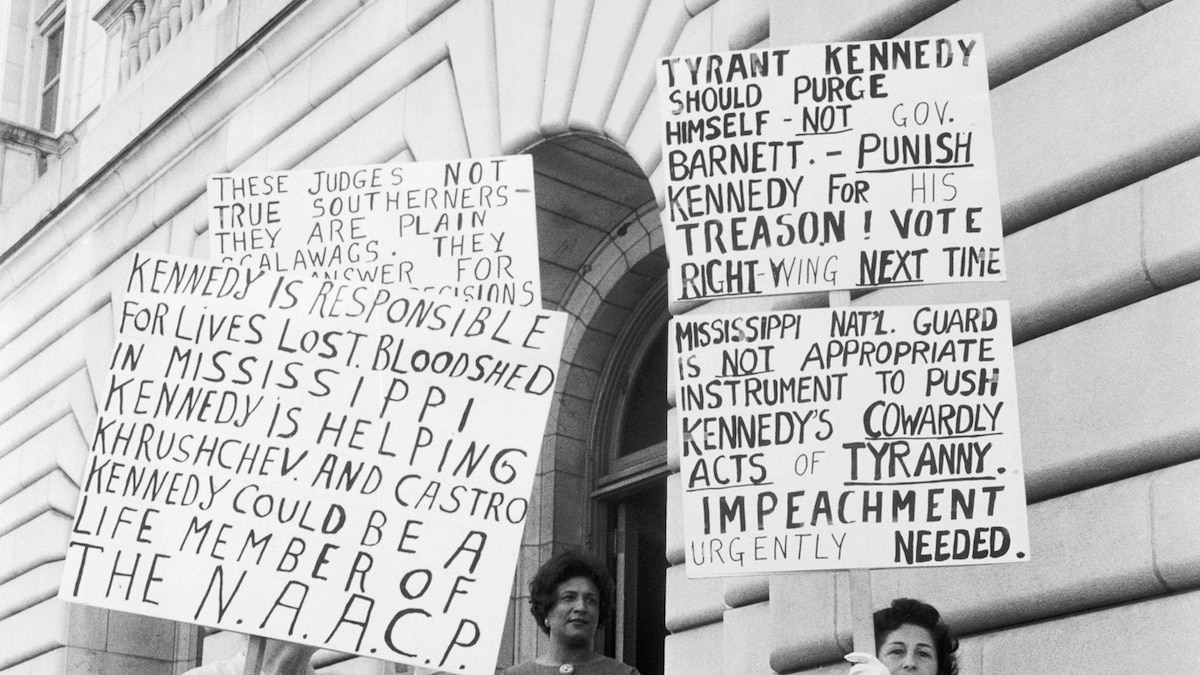 THESE JUDGES NOT
TRUE SOUTHERNERS-
THEY ARE PLAIN
SCALAWAGS. THEY
ANSWER FOR
DECISIONS
KENNEDY IS RESPONSIBLE
FOR LIVES LOST. BLOODSHED
IN MISSISSIPPI
KENNEDY IS HELPING
KHRUSHCHEV. AND CASTRO
KENNEDY COULD BE A
LIFE MEMBER OF
THE N.A.A.C.P.
TYRANT KENNEDY
SHOULD PURGE
HIMSELF - NOT GOV.
BARNETT. - PUNISH
KENNEDY FOR HIS
TREASON! VOTE
RIGHT-WING NEXT TIME
MISSISSIPPI NAT'L. GUARD
IS NOT APPROPRIATE
INSTRUMENT TO PUSH
KENNEDY'S COWARDLY
ACTS OF TYRANNY.
IMPEACHMENT
URGENTLY NEEDED.